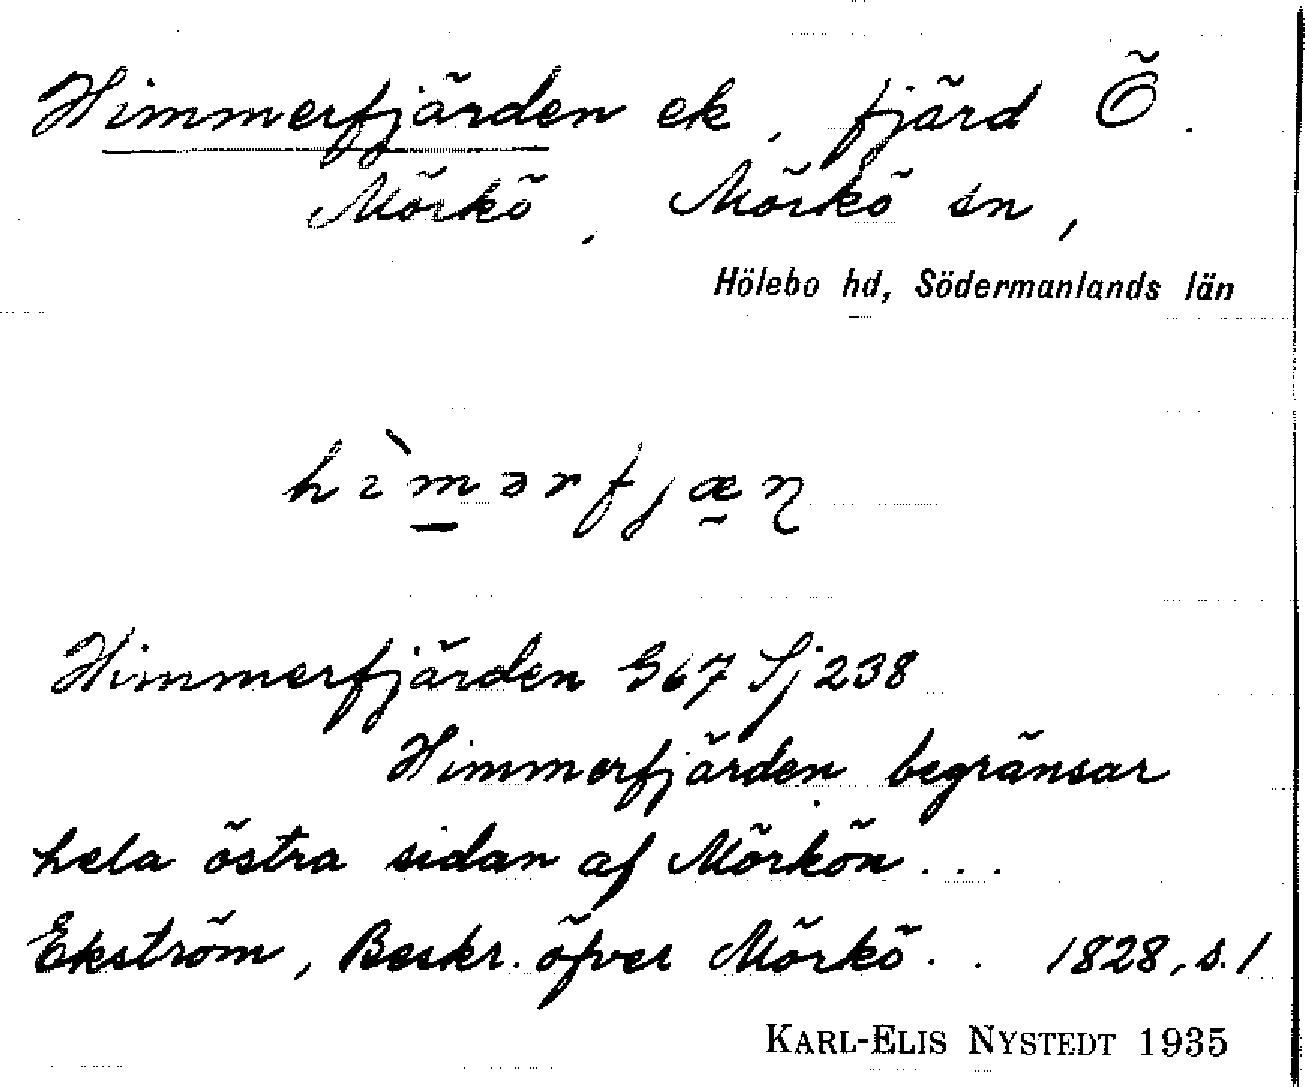 Himmerfjärden ek, fjärd Ö.
Mörkö, Mörkö sn,
Hölebo hd, Södermanlands län
hìmərfjæɳ
Himmerfjärden G67 Sj 238
Himmerfjärden begränsar
hela östra sidan af Mörkön...
Ekström, Beskr. öfver Mörkö.. 1828, s. 1
KARL-ELIS NYSTEDT 1935